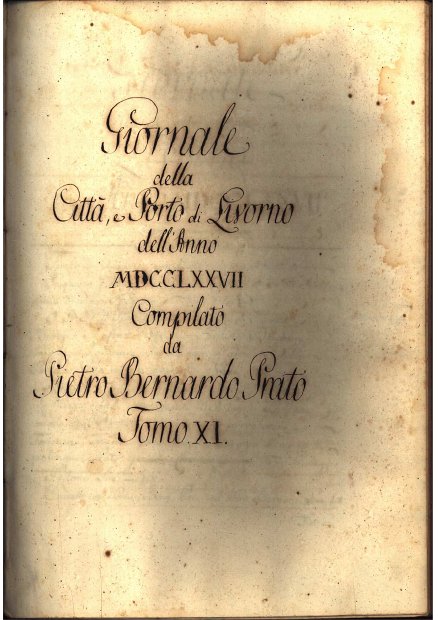 Giornale
della
Città, e Porto di Livorno
dell'Anno
MDCCLXXVII
Compilato
da
Pietro Bernardo Prato
Tomo XI.